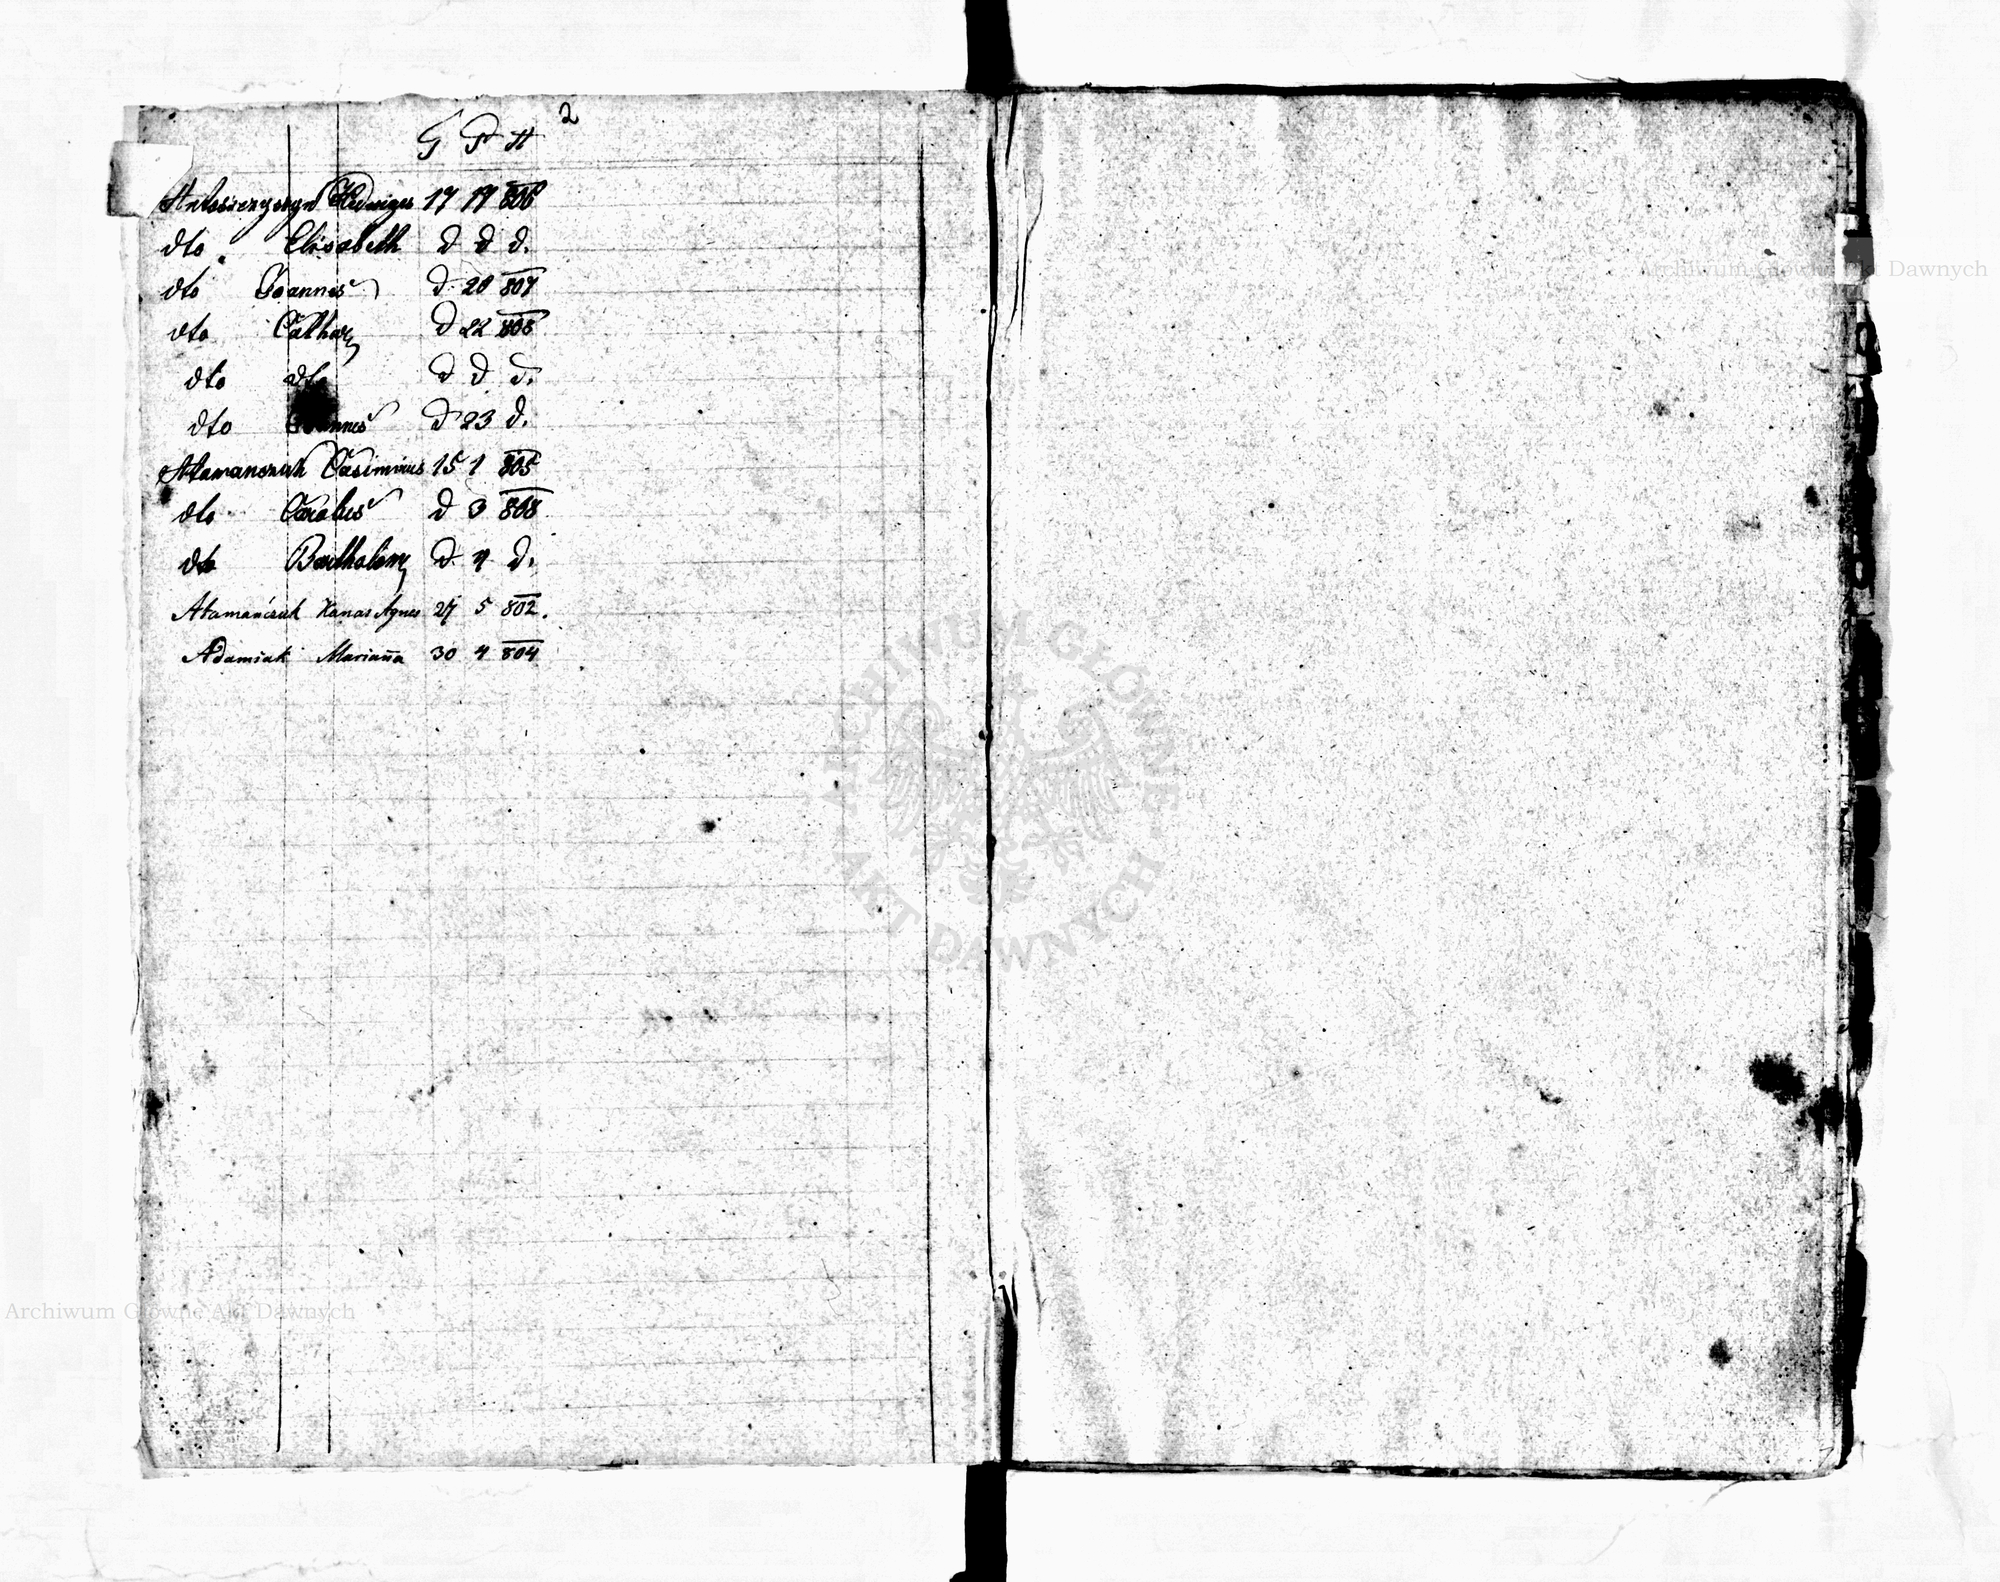 2
G P H
Hedwiges 17 806
dto. Elisabeth d d d.
dto Joannes d 20 807
dto Cathar d 22 808
dto dto d d d.
dto Joannes d 23 d.
Atamanczuk Casimirus 15 1 805
dto Carolus d 3 808
dto Bartholom d. 4 d.
Atamańczuk Hanas Agnes 27 5 802.
Adamiak Marianna 30 4 804
Archiwum Główne Akt Dawnych
ARCHIWUM GŁÓWNE
AKT DAWNYCH
Archiwum Główne Akt Dawnych